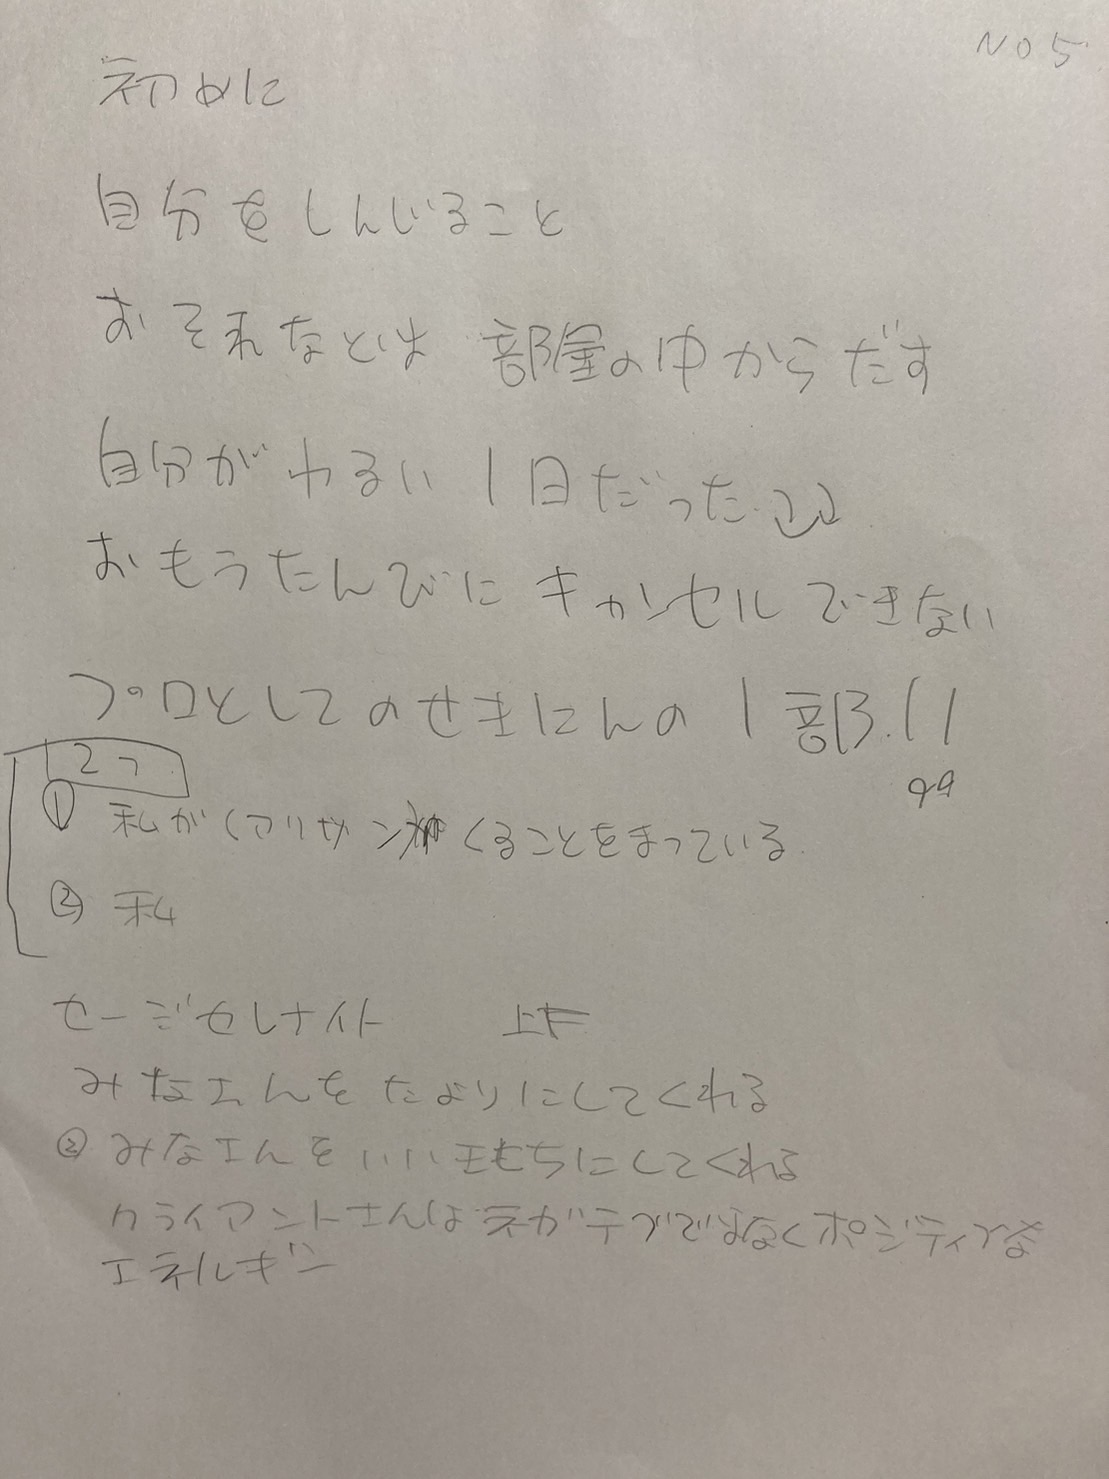 NO 5
初めに
自分をしんじること
おそれなどは 部屋の中からだす
自分がわるい1日だった
おもうたんびにキャンセルできない
プロとしてのせきにんの1部.11
99
2つ
① 私が(アリサン くることをまっている
② 私
セージセレナイト
みなさんをたよりにしてくれる
② みなさんをいい きもちにしてくれる
クライアントさんはネガテブではなくポジティブな
エネルギー